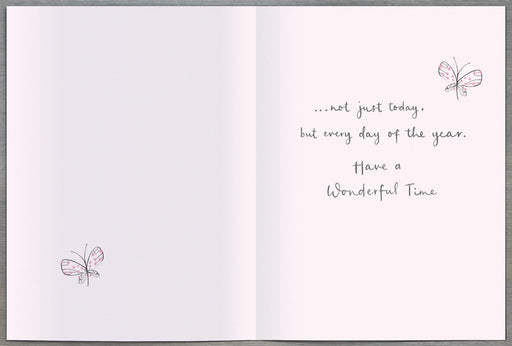 ...not just today,
but every day of the year.
Have a
Wonderful Time